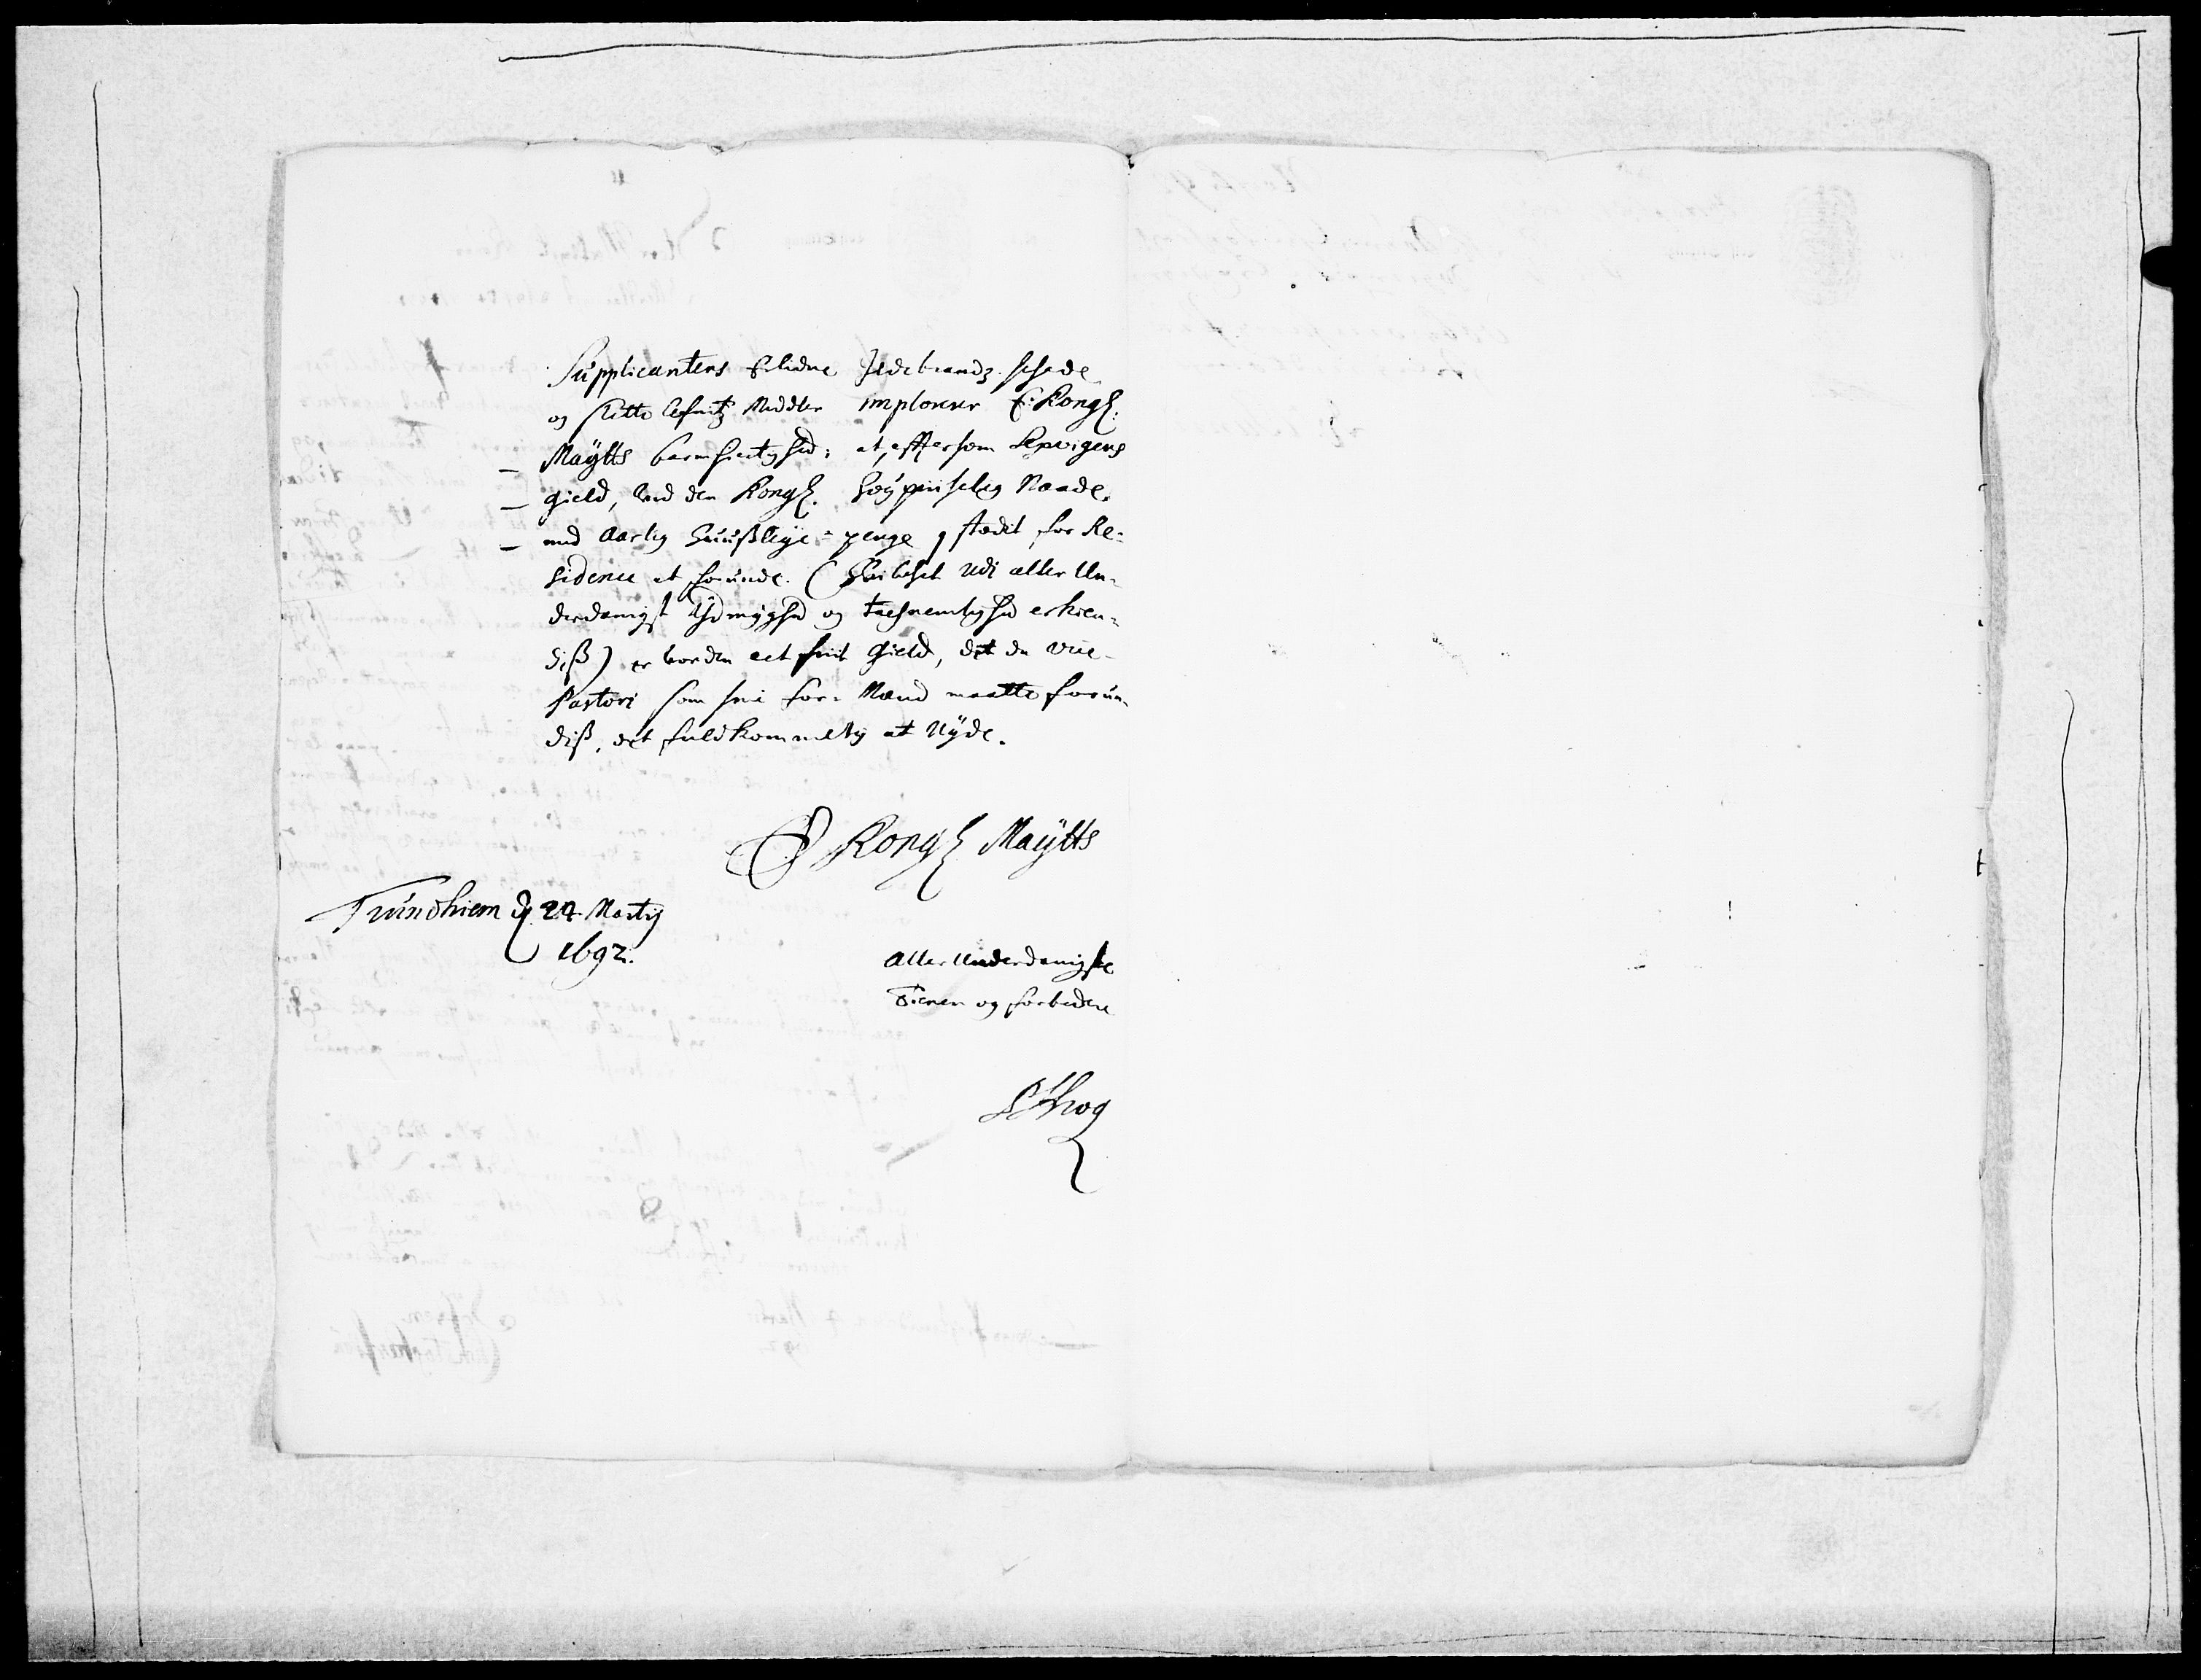 Supplicantens Ildebrandz
og slette Middler imploerer E: Kongl:
Maÿtts barmhiertighed; at, effter som Lexvigens
gield, ved den Kongl. Høypriiselig Naade,
med Aarlig Huußleÿe-penge i stædit for Re-
sidence at forunde. (Hvilchet udi aller Un-
derdanigst Ydmyghed og erkien-
diß) er vorden eet frit gield, det da
Pastori som for- Mand maatte forun-
diß, det fuldkommelig at Nÿde.
E Kongl Maÿtts
Trundhiem d 24 Martij
1692.
Aller Underdanigste
Tienere og forbedere
P Krog